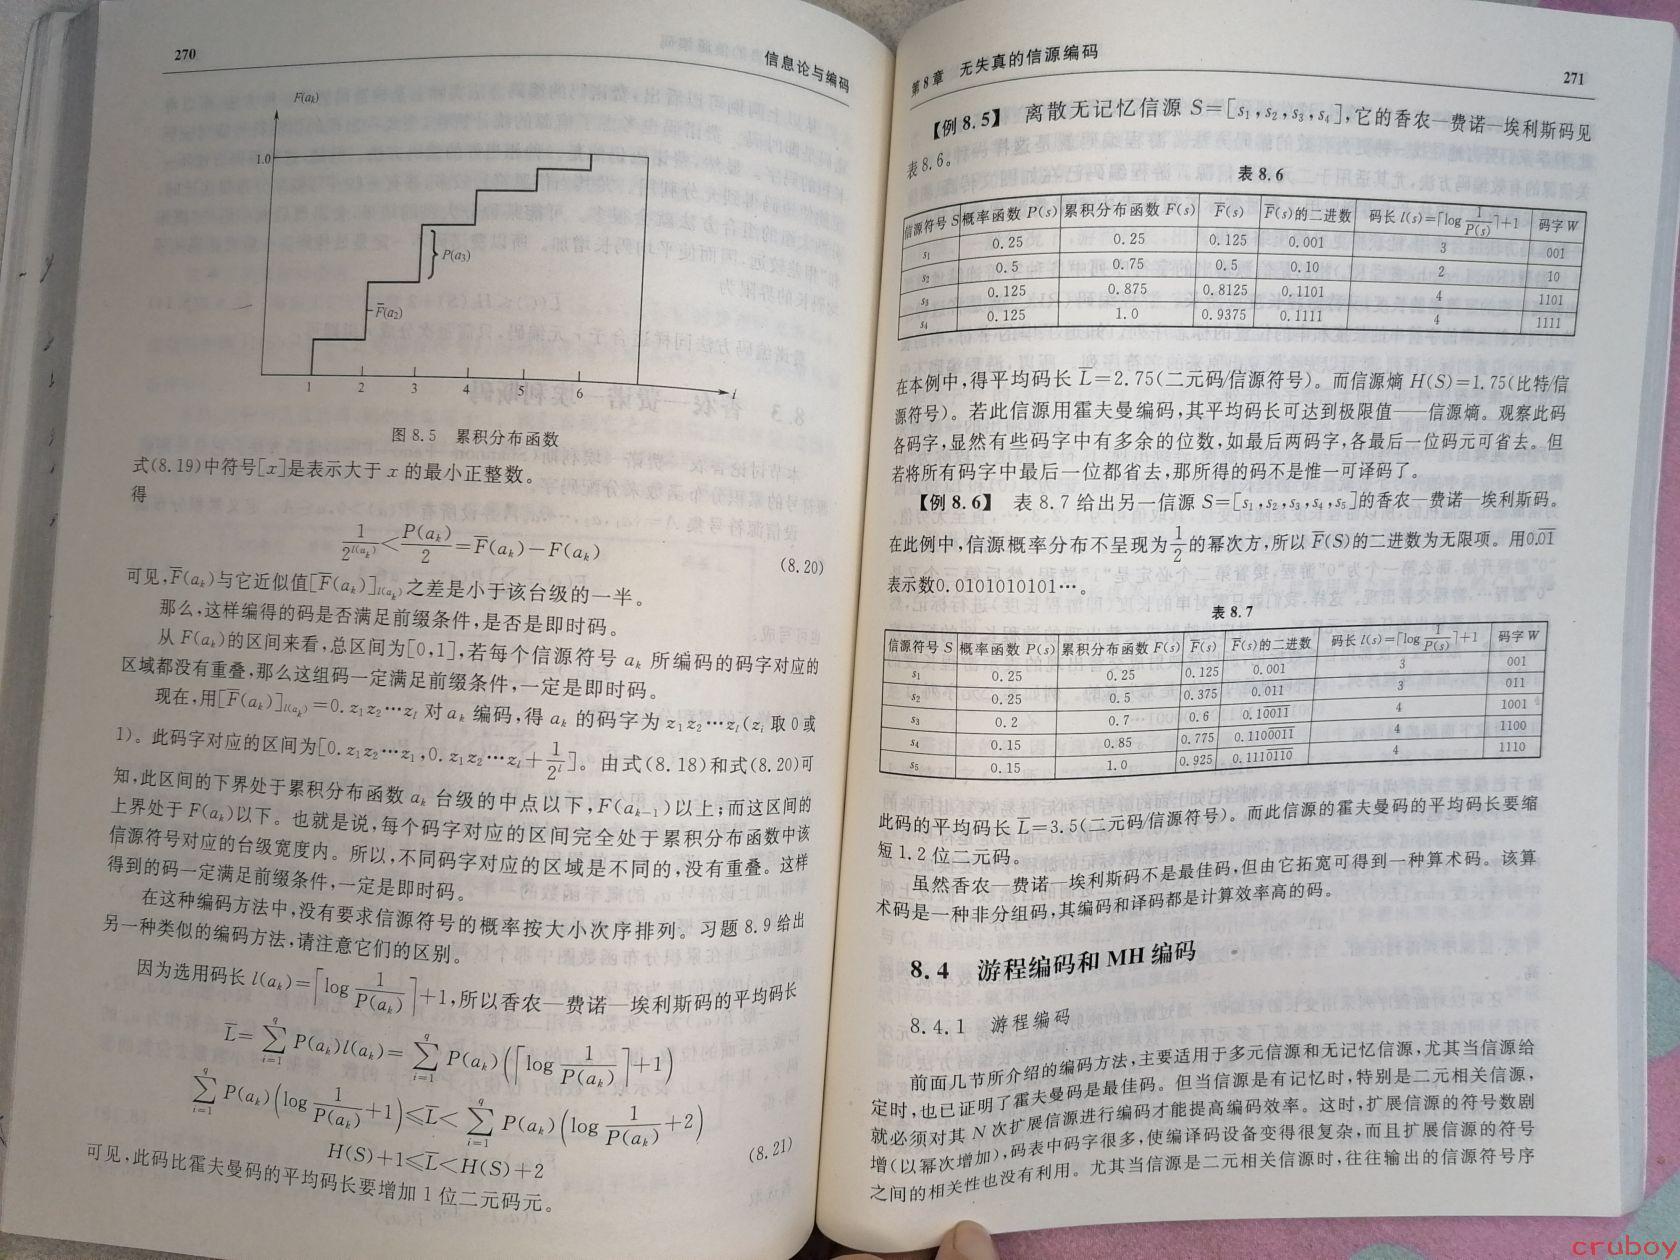 270
信息论与编码
F(aₖ)
1.0
P(a₃)
F̄(a₂)
1 2 3 4 5 6 i
图 8.5 累积分布函数
式(8.19)中符号[x]是表示大于 x 的最小正整数。
得
1/2^{l(aₖ)} < P(aₖ)/2 = F̄(aₖ)－F(aₖ) (8.20)
可见,F̄(aₖ)与它近似值[F̄(aₖ)]_{l(aₖ)}之差是小于该台级的一半。
那么,这样编得的码是否满足前缀条件,是否是即时码。
从 F(aₖ)的区间来看,总区间为[0,1],若每个信源符号 aₖ 所编码的码字对应的
区域都没有重叠,那么这组码一定满足前缀条件,一定是即时码。
现在,用[F̄(aₖ)]_{l(aₖ)}=0.z₁z₂⋯z_l 对 aₖ 编码,得 aₖ 的码字为 z₁z₂⋯z_l(zᵢ 取 0 或
1)。此码字对应的区间为[0.z₁z₂⋯z₁,0.z₁z₂⋯z_l+1/2^l]。由式(8.18)和式(8.20)可
知,此区间的下界处于累积分布函数 aₖ 台级的中点以下,F(aₖ₋₁)以上;而这区间的
上界处于 F(aₖ)以下。也就是说,每个码字对应的区间完全处于累积分布函数中该
信源符号对应的台级宽度内。所以,不同码字对应的区域是不同的,没有重叠。这样
得到的码一定满足前缀条件,一定是即时码。
在这种编码方法中,没有要求信源符号的概率按大小次序排列。习题 8.9 给出
另一种类似的编码方法,请注意它们的区别。
因为选用码长 l(aₖ)=⌈log 1/P(aₖ)⌉+1,所以香农—费诺—埃利斯码的平均码长
L̄=∑_{i=1}^{q} P(aₖ)l(aₖ)=∑_{i=1}^{q} P(aₖ)(⌈log 1/P(aₖ)⌉+1)
∑_{i=1}^{q} P(aₖ)(log 1/P(aₖ)+1)≤L̄<∑_{i=1}^{q} P(aₖ)(log 1/P(aₖ)+2)
H(S)+1≤L̄<H(S)+2 (8.21)
可见,此码比霍夫曼码的平均码长要增加 1 位二元码元。
第 8 章 无失真的信源编码
271
【例 8.5】 离散无记忆信源 S=[s₁,s₂,s₃,s₄],它的香农—费诺—埃利斯码见
表 8.6。
表 8.6
信源符号 S 概率函数 P(s) 累积分布函数 F(s) F̄(s) F̄(s)的二进数 码长 l(s)=⌈log 1/P(s)⌉+1 码字 W
s₁ 0.25 0.25 0.125 0.001 3 001
s₂ 0.5 0.75 0.5 0.10 2 10
s₃ 0.125 0.875 0.8125 0.1101 4 1101
s₄ 0.125 1.0 0.9375 0.1111 4 1111
在本例中,得平均码长 L̄=2.75(二元码/信源符号)。而信源熵 H(S)=1.75(比特/信
源符号)。若此信源用霍夫曼编码,其平均码长可达到极限值——信源熵。观察此码
各码字,显然有些码字中有多余的位数,如最后两码字,各最后一位码元可省去。但
若将所有码字中最后一位都省去,那所得的码不是惟一可译码了。
【例 8.6】 表 8.7 给出另一信源 S=[s₁,s₂,s₃,s₄,s₅]的香农—费诺—埃利斯码。
在此例中,信源概率分布不呈现为1/2的幂次方,所以 F̄(S)的二进数为无限项。用0.0̅1̅
表示数0.0101010101⋯。
表 8.7
信源符号 S 概率函数 P(s) 累积分布函数 F(s) F̄(s) F̄(s)的二进数 码长 l(s)=⌈log 1/P(s)⌉+1 码字 W
s₁ 0.25 0.25 0.125 0.001 3 001
s₂ 0.25 0.5 0.375 0.011 3 011
s₃ 0.2 0.7 0.6 0.10̅0̅1̅1̅ 4 1001
s₄ 0.15 0.85 0.775 0.1100̅0̅1̅1̅ 4 1100
s₅ 0.15 1.0 0.925 0.1110̅1̅1̅0̅ 4 1110
此码的平均码长 L̄=3.5(二元码/信源符号)。而此信源的霍夫曼码的平均码长要缩
短 1.2 位二元码。
虽然香农—费诺—埃利斯码不是最佳码,但由它拓宽可得到一种算术码。该算
术码是一种非分组码,其编码和译码都是计算效率高的码。
8.4 游程编码和 MH 编码
8.4.1 游程编码
前面几节所介绍的编码方法,主要适用于多元信源和无记忆信源,尤其当信源给
定时,也已证明了霍夫曼码是最佳码。但当信源是有记忆时,特别是二元相关信源,
就必须对其 N 次扩展信源进行编码才能提高编码效率。这时,扩展信源的符号数剧
增(以幂次增加),码表中码字很多,使编译码设备变得很复杂,而且扩展信源的符号
之间的相关性也没有利用。尤其当信源是二元相关信源时,往往输出的信源符号序
cruboy